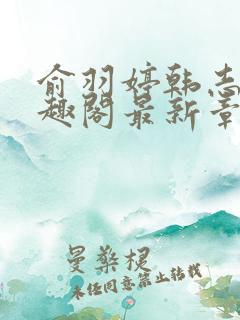 俞羽婷韩志
趣阁最新章
曼桑梗
未经同意禁止转载